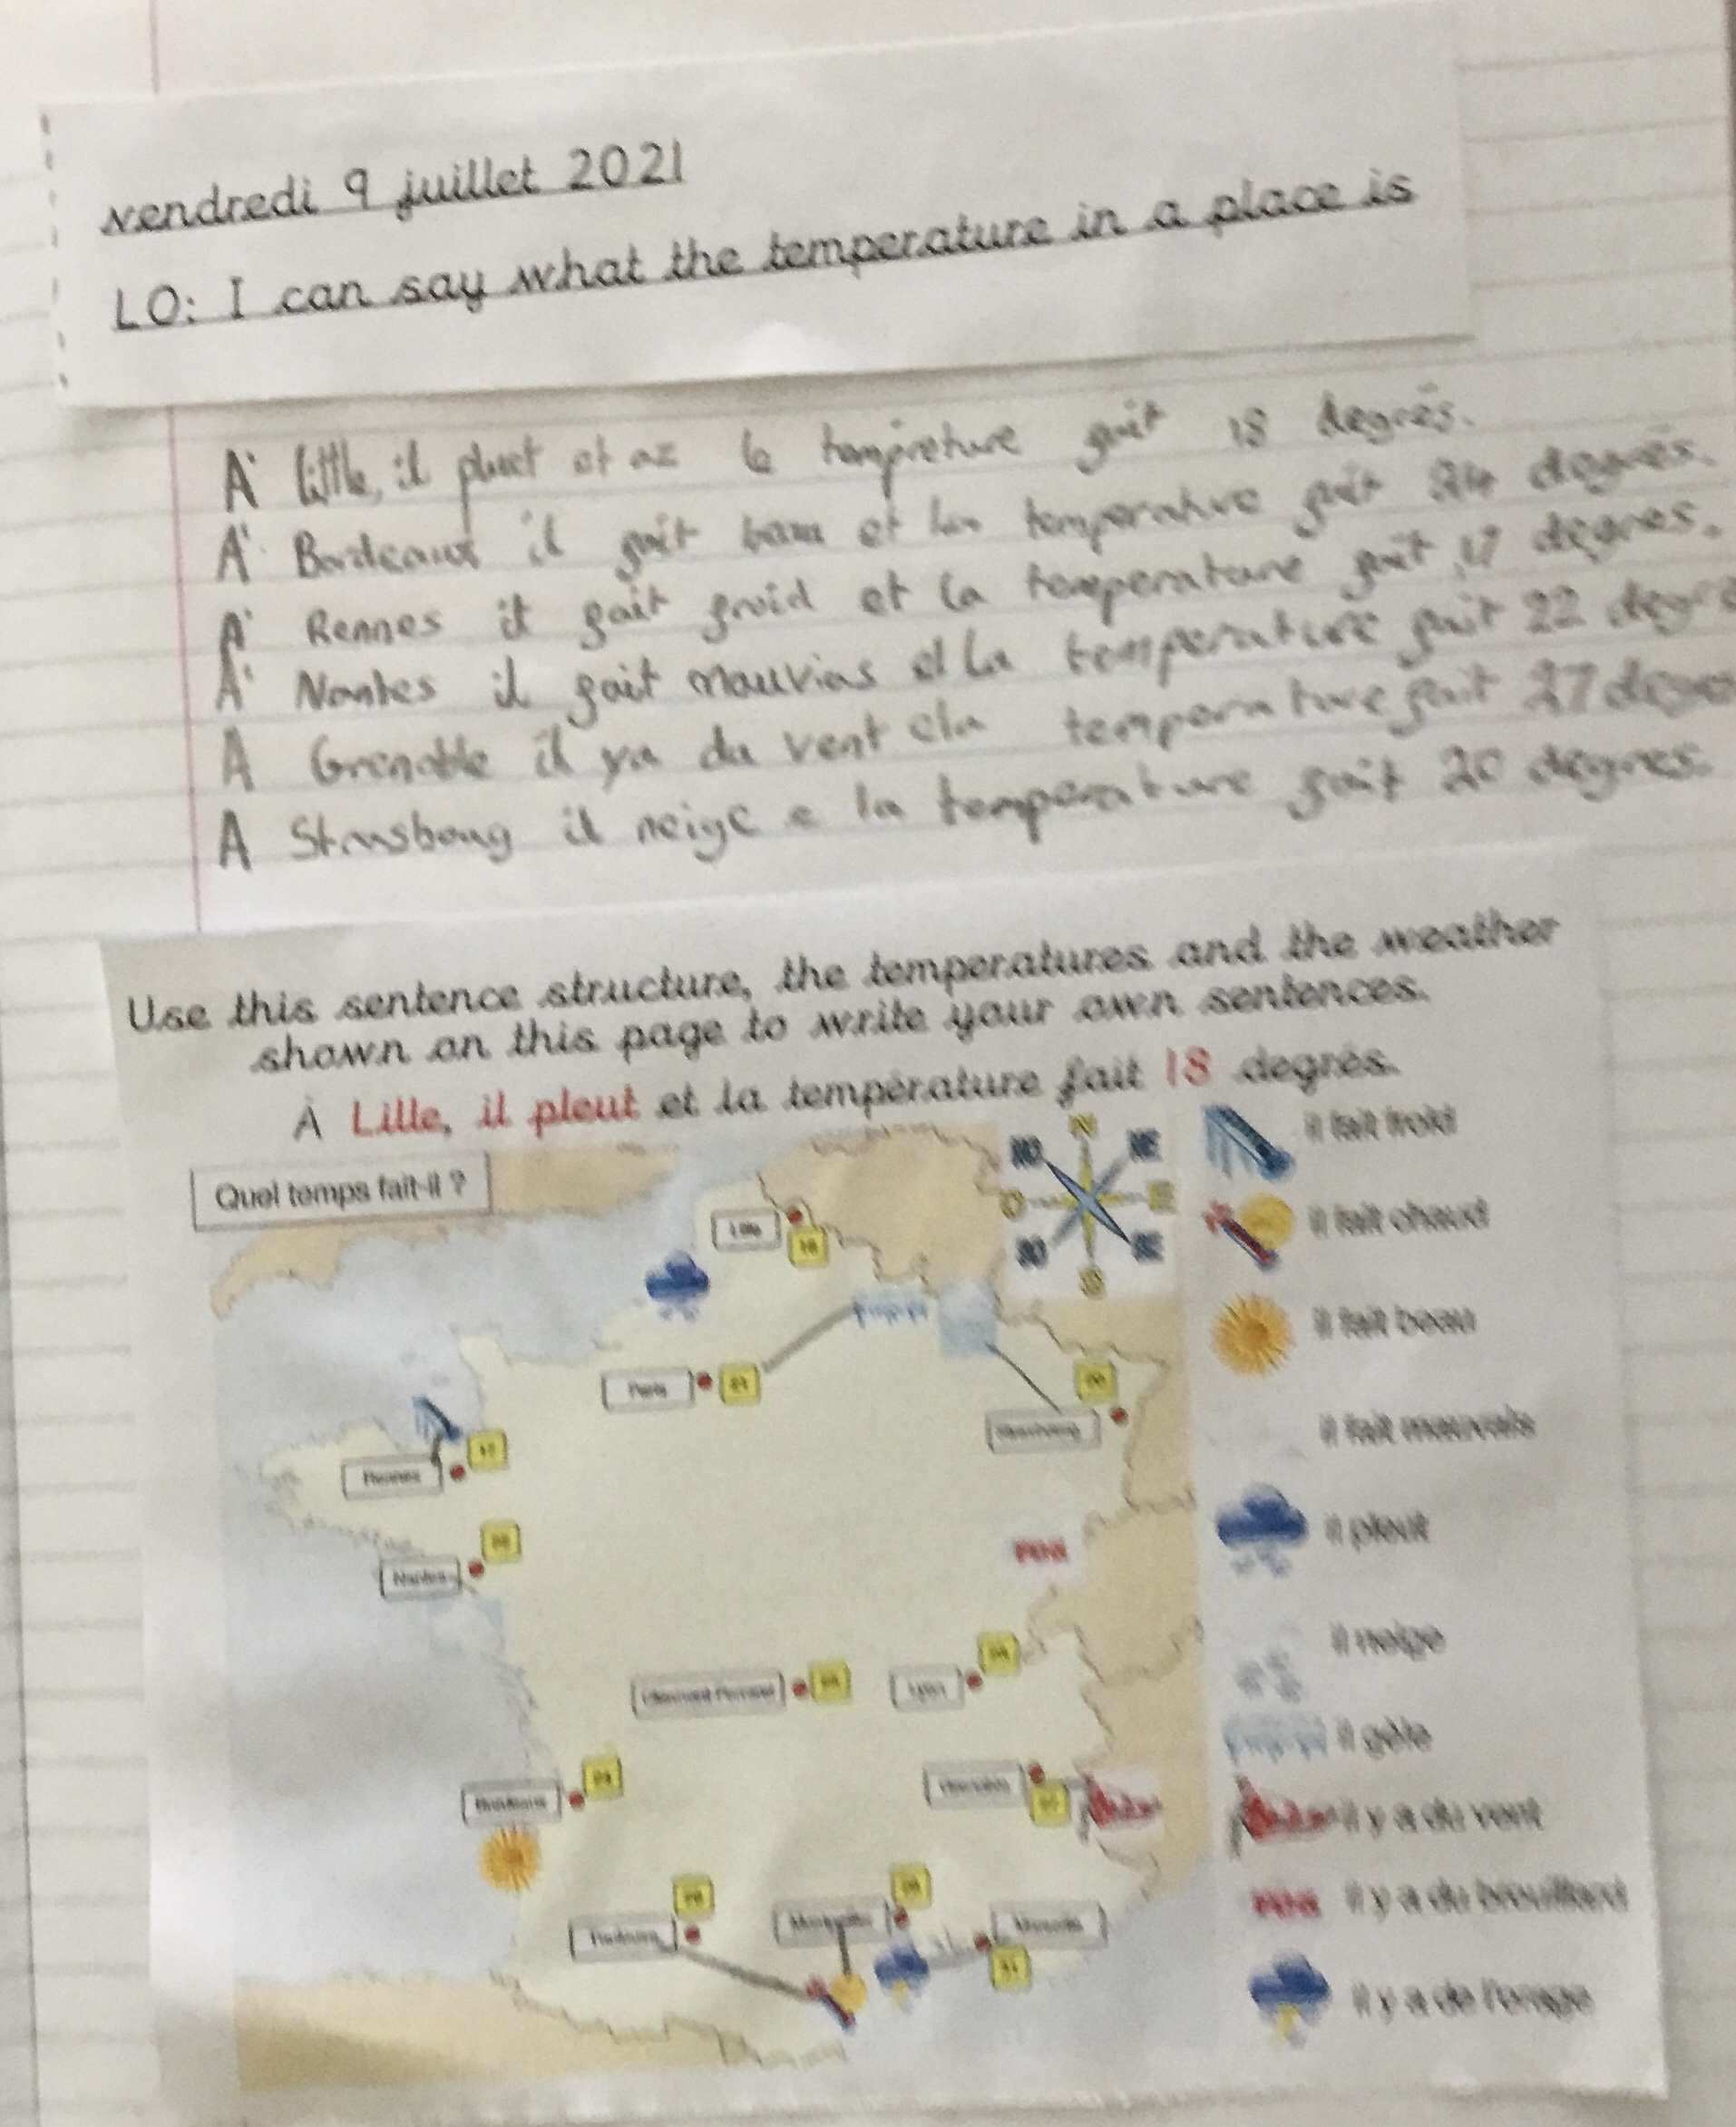 vendredi 9 juillet 2021
LO: I can say what the temperature in a place is
À little, il pluet et az le tempreture fait 18 degrés.
À Bordeaux il fait beau et la temperature fait 24 degrés.
À Rennes it fait froid et la temperature fait 17 degres.
À Nantes il fait mauvias et la temperature fait 22
A Grenoble il ya du vent ela temperature fait 27
A Strasboug il neige e la temperature fait 20 degres.
Use this sentence structure, the temperatures and the weather
shown on this page to write your own sentences.
À Lille, il pleut et la température fait 18 degrés.
Quel temps fait-il ?
N
NO NE
O E
SO SE
S
il fait froid
il fait chaud
il fait beau
il fait mauvais
il pleut
il neige
il gèle
il y a du vent
FOG il y a du brouillard
il y a de l'orage
Lille
18
Paris
21
Strasbourg
20
Rennes
17
Nantes
22
FOG
Clermont-Ferrand
Lyon
Bordeaux
24
Grenoble
27
Toulouse
Montpellier
Marseille
31